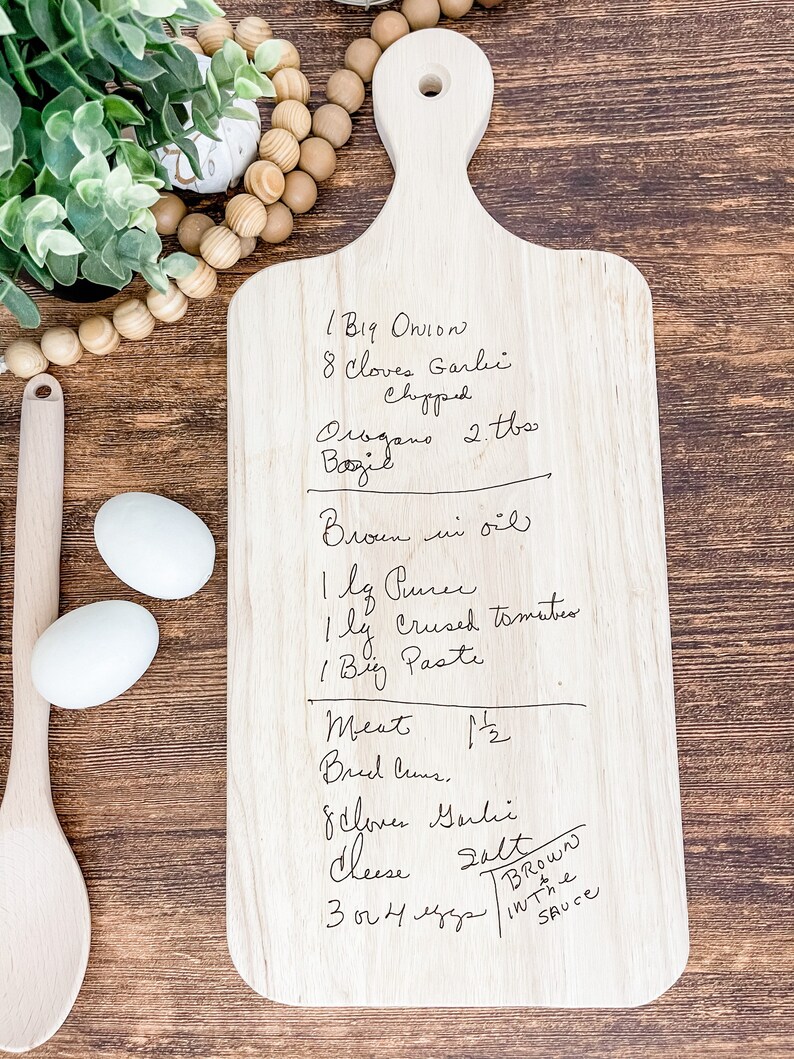 1 Big Onion
8 Cloves Garlic
Chopped
Oregano 2. tbs
Bazil
Brown in oil
1 lg Puree
1 lg Crused tomatoes
1 Big Paste
Meat 1 1/2
Bred Cums.
8 Cloves Garlic
Cheese Salt
3 or 4 eggs
BROWN
&
IN The
SAUCE